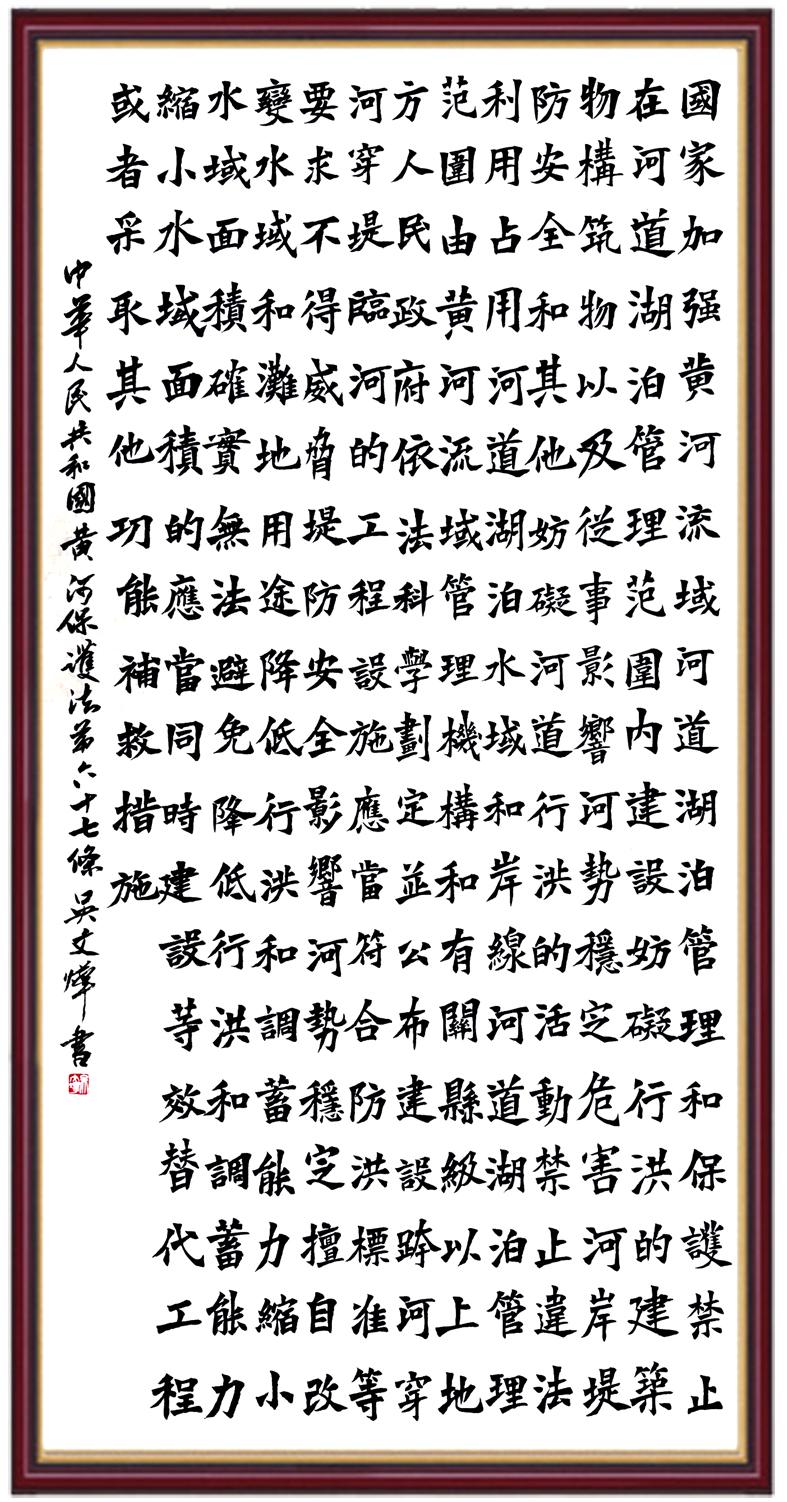 國家加强黄河流域河道湖泊管理和保護禁止
在河道湖泊管理范圍内建設妨礙行洪的建築
物構筑物以及從事影響河勢穩定危害河岸堤
防安全和其他妨礙河道行洪的活動禁止違法
利用占用河道湖泊水域和岸線河道湖泊管理
范圍由黄河流域管理機構和有關縣級以上地
方人民政府依法科學劃定並公布建設跨河穿
河穿堤臨河的工程設施應當符合防洪標准等
要求不得威脅堤防安全影響河勢穩定擅自改
變水域和灘地用途降低行洪和調蓄能力縮小
水域面積確實無法避免降低行洪和調蓄能力
縮小水域面積的應當同時建設等效替代工程
或者采取其他功能補救措施
中華人民共和國黄河保護法第六十七條吴文煒書